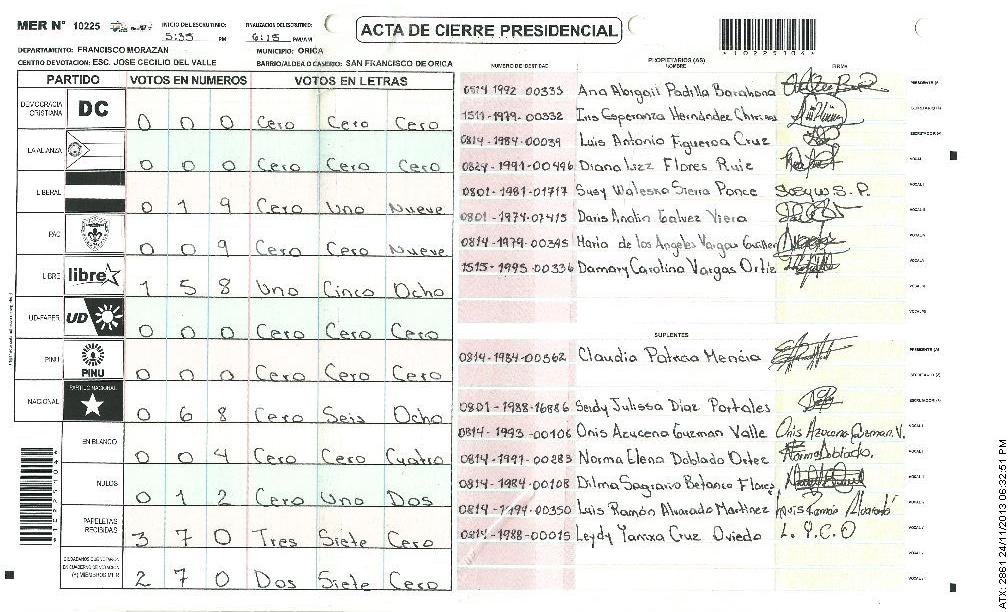 MER Nº 10225
INICIO DEL ESCRUTINIO: 5:35 PM
FINALIZACION DEL ESCRUTINIO: 6:15 PM/AM
ACTA DE CIERRE PRESIDENCIAL
DEPARTAMENTO: FRANCISCO MORAZAN
MUNICIPIO: ORICA
CENTRO DE VOTACION: ESC. JOSE CECILIO DEL VALLE
BARRIO/ALDEA O CASERIO: SAN FRANCISCO DE ORICA
PARTIDO VOTOS EN NUMEROS VOTOS EN LETRAS
DEMOCRACIA CRISTIANA DC 0 0 0 Cero Cero Cero
LA ALIANZA 0 0 0 Cero Cero Cero
LIBERAL 0 1 9 Cero Uno Nueve
PAC 0 0 9 Cero Cero Nueve
LIBRE libre 1 5 8 Uno Cinco Ocho
UD-FAPER UD 0 0 0 Cero Cero Cero
PINU PINU 0 0 0 Cero Cero Cero
NACIONAL PARTIDO NACIONAL 0 6 8 Cero Seis Ocho
EN BLANCO 0 0 4 Cero Cero Cuatro
NULOS 0 1 2 Cero Uno Dos
PAPELETAS RECIBIDAS 3 7 0 Tres Siete Cero
CIUDADANOS QUE VOTARON EN CUADERNO DE VOTACION (+) MIEMBROS MER 2 7 0 Dos Siete Cero
PROPIETARIOS (AS)
NUMERO DE IDENTIDAD NOMBRE FIRMA
1992 00333 Ana Abigail Padilla Barahona
1511-1979-00332 Iris Esperanza Hernández
0814-1984-00039 Luis Antonio Figueroa Cruz
0824-1991-00496 Diana Lizz Flores Ruiz
0801-1981-01717 Susy Waleska Sierra Ponce
0801-1974-07415 Galvez
0814-1979-00395 Maria de los Angeles Vargas
1515-1995-00336 Damary Carolina Vargas Ortiz
SUPLENTES
0814-1984-00562 Claudia Patricia Mencia
0801-1988-16886 Seidy Julissa Diaz Portales
0814-1993-00106 Onis Azucena Guzman Valle Onis Azucena Guzman.V.
0814-1991-00283 Norma Elena Doblado Ortez Norma Doblado.
0814-1984-00108 Dilma Sagrario Betanco Flores
0814-1994-00350 Luis Ramón Alvarado Martinez Luis Ramón Alvarado
0814-1988-00015 Leydy Yanixa Cruz Oviedo L. Y.C.O
ATX: 2861 24/11/2013 06:32:51 PM